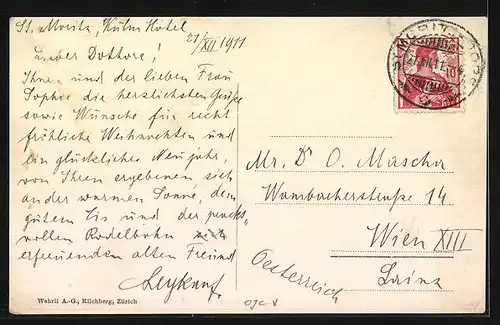 St. Moritz, Kulm Hôtel
21/XII 1911
Lieber Dottore!
Ihnen und der lieben Frau
Sophie die herzlichsten Grüße
sowie Wünsche für recht
fröhliche Weihnachten und
ein glückliches Neujahr,
von Ihrem ergebenen sich
an der warmen Sonne, dem
gutem Eis und der pracht-
vollen Rodelbahn
erfreuenden alten Freund
Leykauf
Mr. Dr O. Mascha
Wambacherstraße 14
Wien XIII
Lainz
Oesterreich
Wehrli A.-G., Kilchberg, Zürich